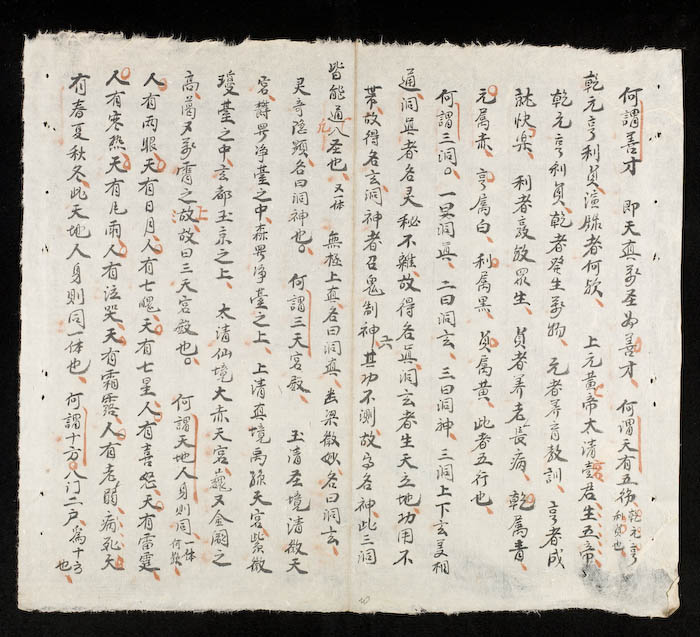 何謂善才　即天真萬聖為善才　何謂天有五行　乾元亨利貞也
乾元亨利貞演賑者何欤　上元黄帝太清壹君生五帝
乾元亨利貞乾者發生萬物　元者养育教訓　亨者成
就快樂　利者救放眾生　貞者养老長病　乾属青
元属赤　亨属白　利属黑　貞属黄　此者五行也
何謂三洞　一曰洞真　二曰洞玄　三曰洞神　三洞上下玄美相
通洞真者名灵秘不雜故得名真洞玄者生天立地功用不
带故得名玄洞神者召鬼制神其功不測故為名神此三洞
皆能通入圣也　又一体　無极上真名曰洞真　梁微妙名曰洞玄
灵奇隐顕名曰洞神也　何謂三天宮殿　玉清圣境清微天
宮 净臺之中森 净臺之上　上清真境禹餘天宮紫微
瓊臺之中玄都玉京之上　太清仙境大赤天宮 又金阙之
高 万霄之上故曰三天宮殿也　何謂天地人身則同一体何欤
人有兩眼天有日月人有七魄天有七星人有喜怒天有雷霆
人有寒热天有凡雨人有泣哭天有霜露人有老弱病死天
有春夏秋冬此天地人身則同一体也　何謂十方八门二户為十方也